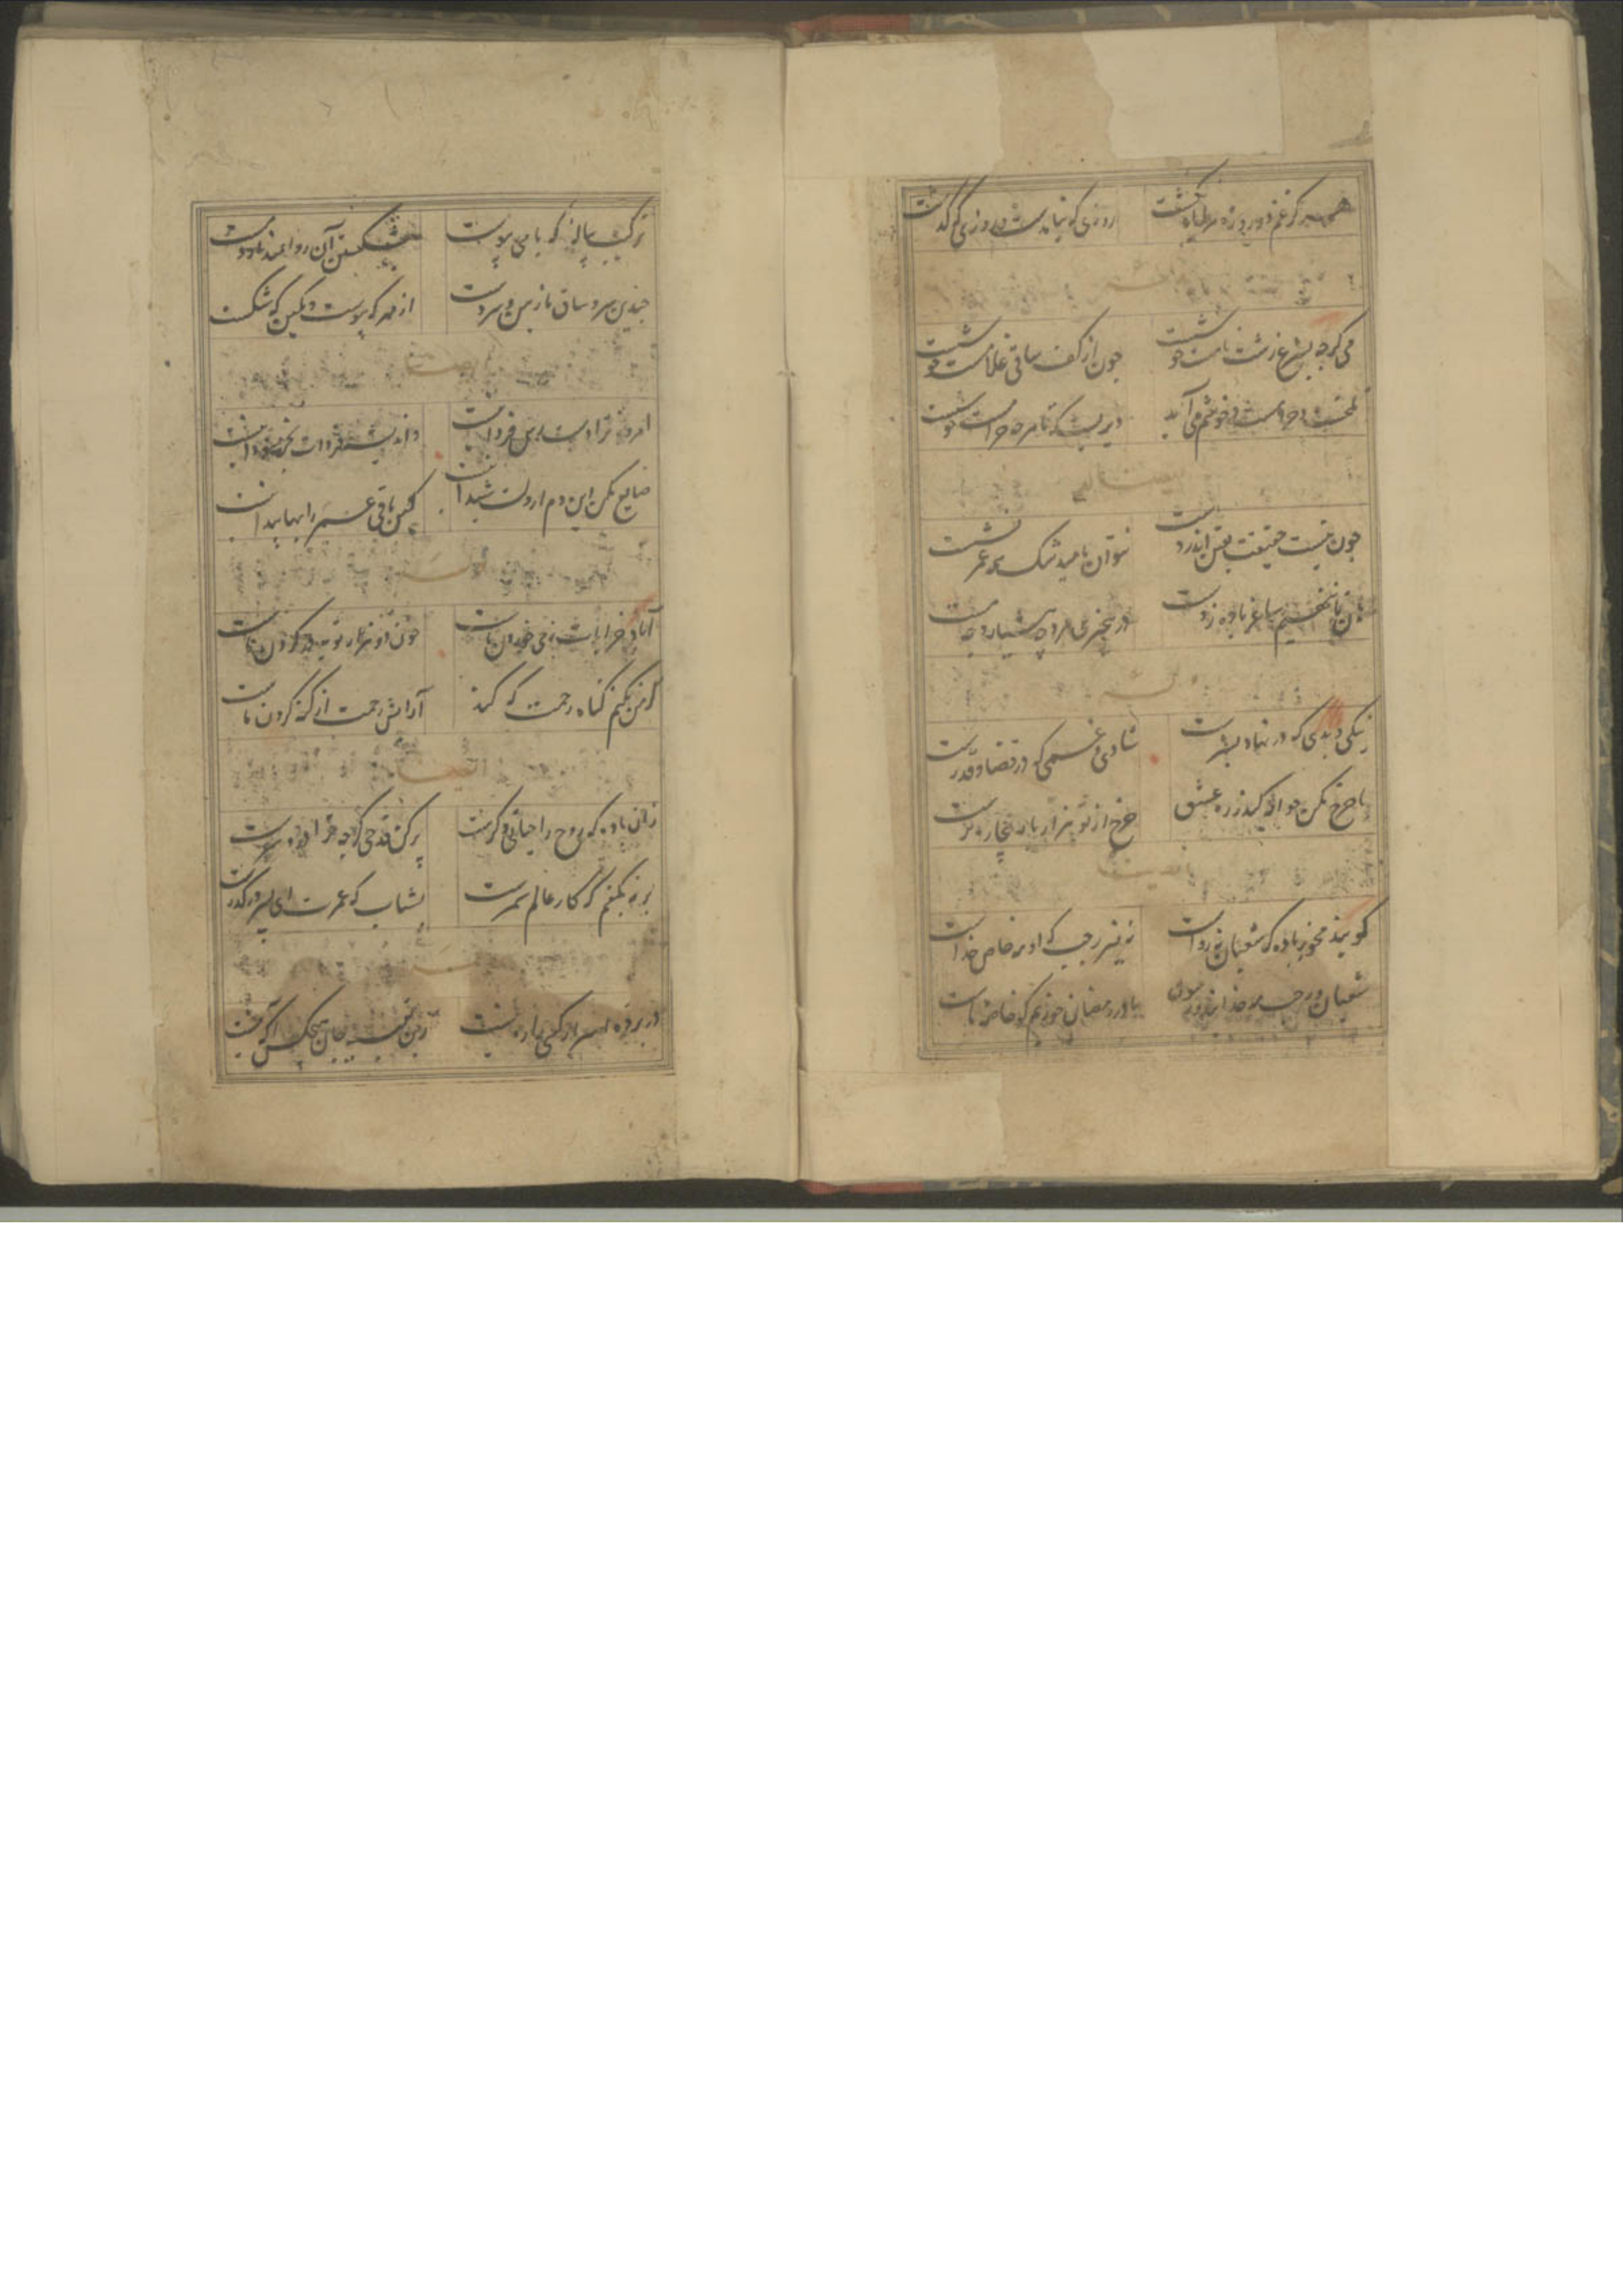 هرگز غم دو روزه مرا یاد نگشت روزی که نیامدست و روزی که گذشت
می گرچه بشرع زشت نامست خوشست چون از کف ساقی غلامست خوشست
تلخست و حرامست و خوشم می آید دیریست که تا هرچه حرامست خوشست
چون نیست حقیقت و یقین اندر دست نتوان بامید شک همه عمر نشست
هان تا ننهیم ساغر باده ز دست در بیخبری مرد چه هشیار و چه مست
نیکی و بدی که در نهاد بشرست شادی و غمی که در قضا و قدرست
با چرخ مکن حواله کاندر ره عشق چرخ از تو هزار بار بیچاره ترست
گویند مخور باده که شعبان نه رواست نه نیز رجب که او مه خاص خداست
شعبان و رجب مه خدایند و رسول ما در رمضان خوریم کان خاصه ماست
ترکیب پیاله که با می پیوست بشکستن آن روا نمیدارد مست
چندین سر و ساق نازنین و سر و دست از مهر که پیوست و بکین که شکست
امروز ترا دست رس فردا نیست و اندیشه فردات بجز سودا نیست
ضایع مکن این دم ار دلت شیدا نیست کین باقی عمر را بها پیدا نیست
آباد خرابات ز می خوردن ماست خون دو هزار توبه در گردن ماست
گر من نکنم گناه رحمت که کند آرایش رحمت از گنه کردن ماست
زان باده که روح را حیاتی دگرست پر کن قدحی گرچه ترا درد سرست
بر نه بکفم که کار عالم سمرست بشتاب که عمرت ای پسر در گذرست
در پرده اسرار کسی را ره نیست زین تعبیه جان هیچکس آگه نیست